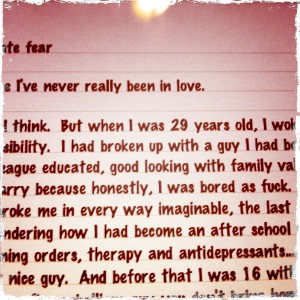 te fear
e I've never really been in love.
I think. But when I was 29 years old, I wo
sibility. I had broken up with a guy I had b
eague educated, good looking with family val
arry because honestly, I was bored as fuck.
roke me in every way imaginable, the last
ndering how I had become an after school
ning orders, therapy and antidepressants...
nice guy. And before that I was 16 wit